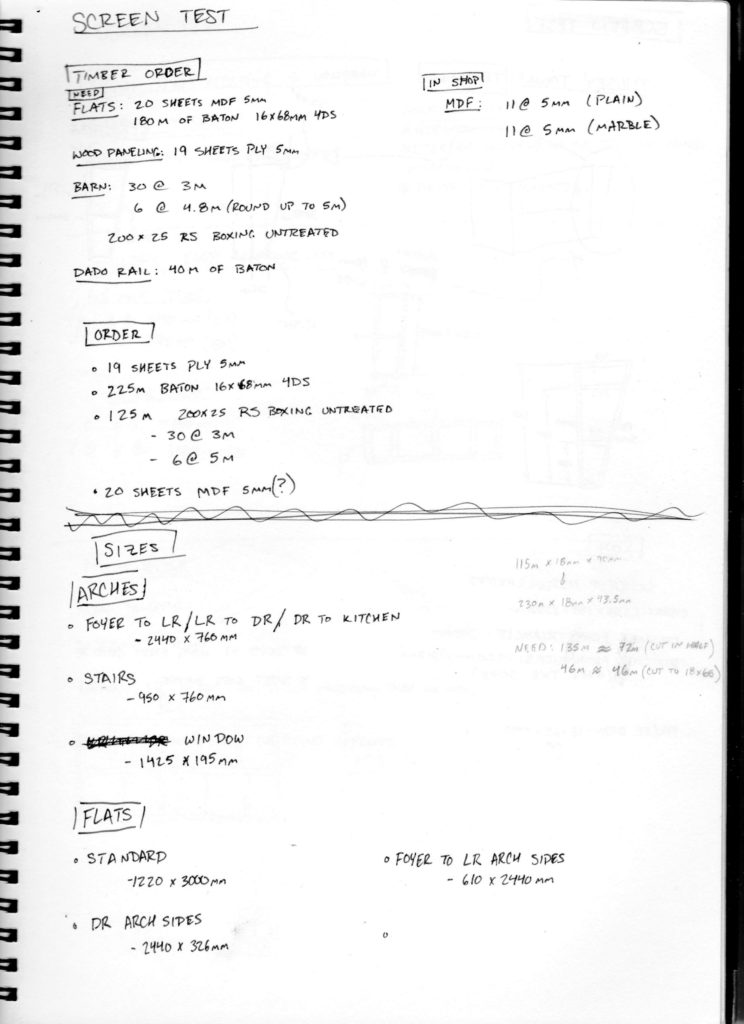 SCREEN TEST
TIMBER ORDER
NEED
FLATS: 20 SHEETS MDF 5MM
180M OF BATON 16X68MM 4DS
WOOD PANELING: 19 SHEETS PLY 5MM
BARN: 30 @ 3M
6 @ 4.8M (ROUND UP TO 5M)
200 X 25 RS BOXING UNTREATED
DADO RAIL: 40M OF BATON
IN SHOP
MDF: 11 @ 5MM (PLAIN)
11 @ 5MM (MARBLE)
ORDER
• 19 SHEETS PLY 5MM
• 225M BATON 16X68MM 4DS
• 125M 200X25 RS BOXING UNTREATED
- 30 @ 3M
- 6 @ 5M
• 20 SHEETS MDF 5MM (?)
SIZES
ARCHES
• FOYER TO LR/LR TO DR/DR TO KITCHEN
- 2440 X 760MM
• STAIRS
- 950 X 760MM
• WINDOW
- 1425 X 195MM
115M X 18MM X 90MM
230M X 18MM X 43.5MM
NEED: 135M ≈ 72M (CUT IN HALF)
46M ≈ 46M (CUT TO 18X68)
FLATS
• STANDARD
-1220 X 3000MM
• FOYER TO LR ARCH SIDES
- 610 X 2440MM
• DR ARCH SIDES
- 2440 X 326MM